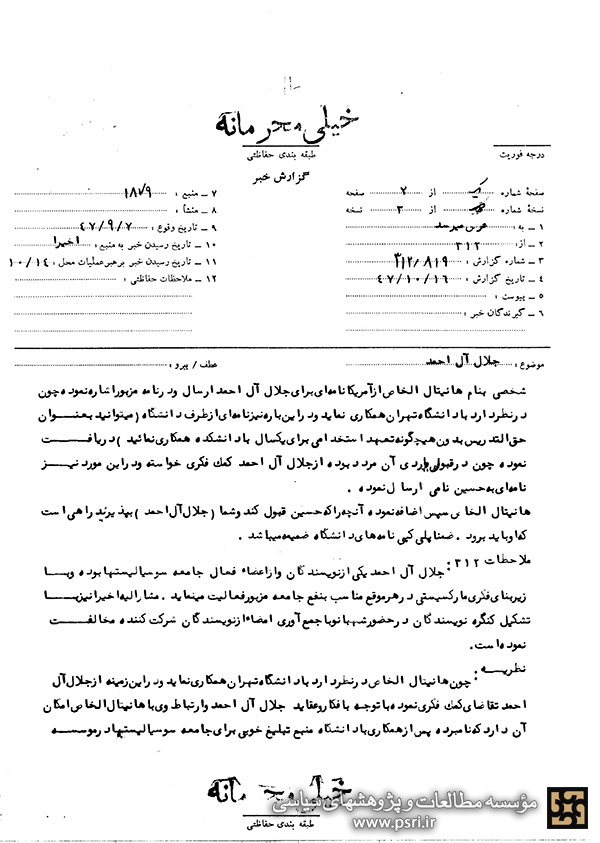 خیلی محرمانه
طبقه بندی حفاظتی
گزارش خبر
درجه فوریت
صفحهٔ شماره یک از ۲ صفحه
نسخهٔ شماره از ۳ نسخه
۱ - به :
۲ - از : ۳۱۲
۳ - شماره گزارش : ۳۱۲/۸۱۹
۴ - تاریخ گزارش : ۴۷/۱۰/۱۶
۵ - پیوست :
۶ - گیرندگان خبر :
۷ - منبع : ۱۸۷۹
۸ - منشأ :
۹ - تاریخ وقوع : ۴۷/۹/۷
۱۰ - تاریخ رسیدن خبر به منبع : اخیرا
۱۱ - تاریخ رسیدن خبر برهبر عملیات محل : ۱۰/۱۴
۱۲ - ملاحظات حفاظتی :
موضوع : جلال آل احمد
عطف / پیرو :
شخصی بنام هانیتال الخاص از آمریکا نامه‌ای برای جلال آل احمد ارسال و در نامه مزبور اشاره نموده چون
در نظر دارد با دانشگاه تهران همکاری نماید و در این باره نیز نامه‌ای از طرف دانشگاه ( میتوانید بعنوان
حق التدریس بدون هیچگونه تعهد استخدامی برای یکسال با دانشکده همکاری نمائید ) دریافت
نموده چون در قبولی یا ردی آن مردد بوده از جلال آل احمد کمک فکری خواسته و در این مورد نیز
نامه‌ای به حسین نامی ارسال نموده .
هانیتال الخاص سپس اضافه نموده آنچه را که حسین قبول کند و شما ( جلال آل احمد ) بپذیرید راهی است
که او باید برود . ضمنا پلی کپی نامه‌های دانشگاه ضمیمه میباشد .
ملاحظات ۳۱۲ : جلال آل احمد یکی از نویسندگان و از اعضاء فعال جامعه سوسیالیستها بوده و با
زیربنای فکری مارکسیستی در هر موقع مناسب بنفع جامعه مزبور فعالیت مینماید . مشارالیه اخیرا نیز با
تشکیل کنگره نویسندگان در حضور شهبانو با جمع آوری امضاء از نویسندگان شرکت کننده مخالفت
نموده است .
نظریه :
چون هانیتال الخاص در نظر دارد با دانشگاه تهران همکاری نماید و در این زمینه از جلال آل
احمد تقاضای کمک فکری نموده با توجه با فکار و عقاید جلال آل احمد و ارتباط وی با هانیتال الخاص امکان
آن دارد که نامبرده پس از همکاری با دانشگاه منبع تبلیغ خوبی برای جامعه سوسیالیستها در موسسه
مؤسسه مطالعات و پژوهشهای سیاسی
www.psri.ir
خیلی محرمانه
طبقه بندی حفاظتی